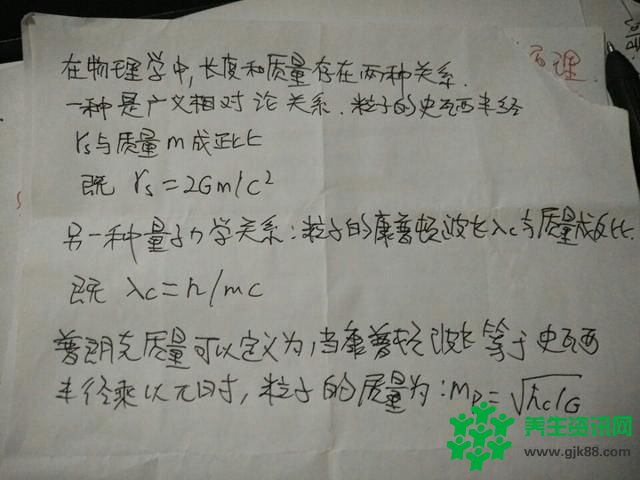 在物理学中,长度和质量存在两种关系.
一种是广义相对论关系.粒子的史瓦西半经
rs与质量m成正比
既 rs=2Gm/c²
另一种量子力学关系:粒子的康普顿波长λc与质量成反比.
既 λc=h/mc
普朗克质量可以定义为,当康普顿波长等于史瓦西
半径乘以π时,粒子的质量为:mp=√ħc/G
理
养生资讯网
www.gjk88.com